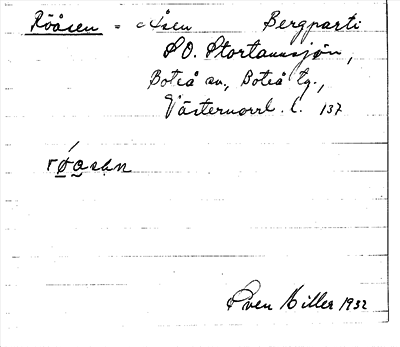 Rööåsen = Åsen Bergparti
S O. Stortannsjön,
Boteå sn, Boteå tg.,
Västernorrl. l. 137
Sven Hiller 1932